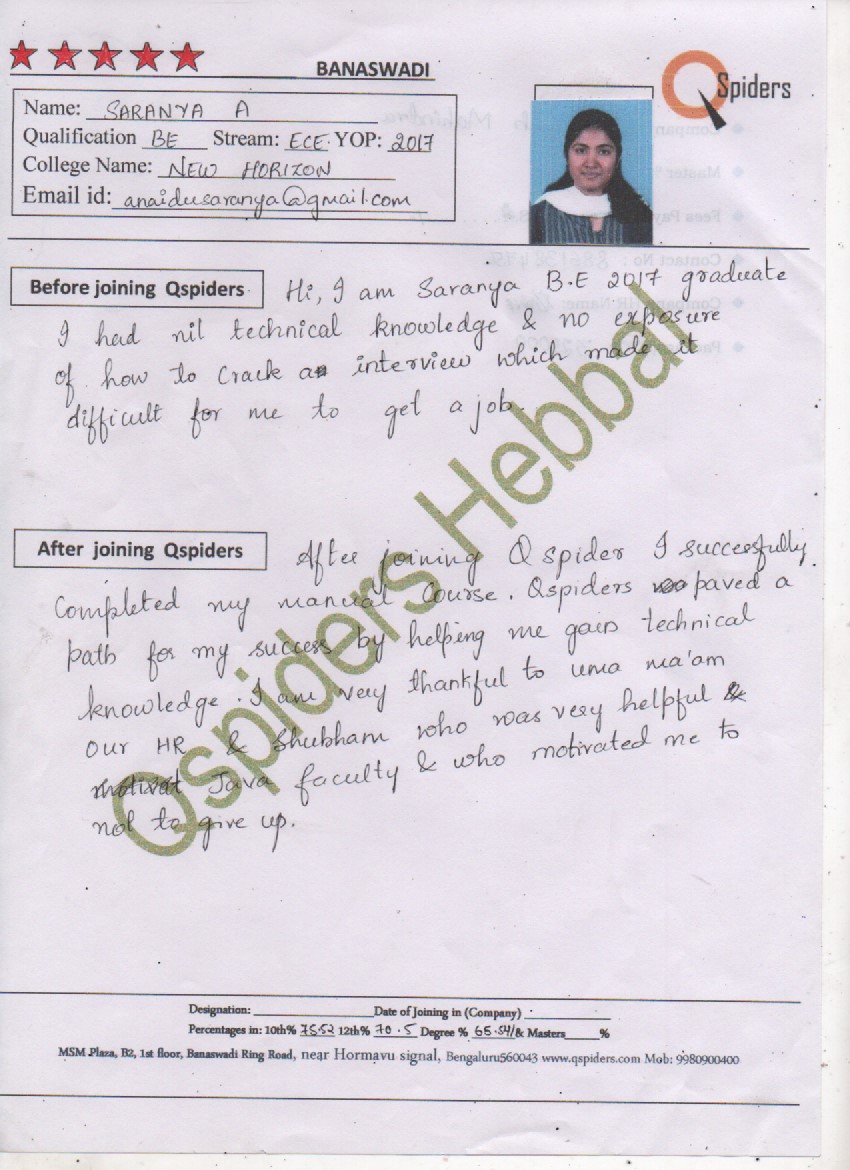 BANASWADI
QSpiders
Name: SARANYA A
Qualification BE Stream: ECE YOP: 2017
College Name: NEW HORIZON
Email id: anaidusaranya@gmail.com
Before joining Qspiders Hi, I am Saranya B.E 2017 graduate
I had nil technical knowledge & no exposure
of how to crack an interview which made it
difficult for me to get a job.
After joining Qspiders After joining Qspider I successfully
completed my manual course. Qspiders paved a
path for my success by helping me gain technical
knowledge. I am very thankful to uma ma'am
our HR & Shubham who was very helpful &
Java faculty & who motivated me to
not to give up.
Qspiders Hebbal
Designation: Date of Joining in (Company)
Percentages in: 10th% 75.52 12th% 70.5 Degree % 65.54/& Masters %
MSM Plaza, B2, 1st floor, Banaswadi Ring Road, near Hormavu signal, Bengaluru560043 www.qspiders.com Mob: 9980900400